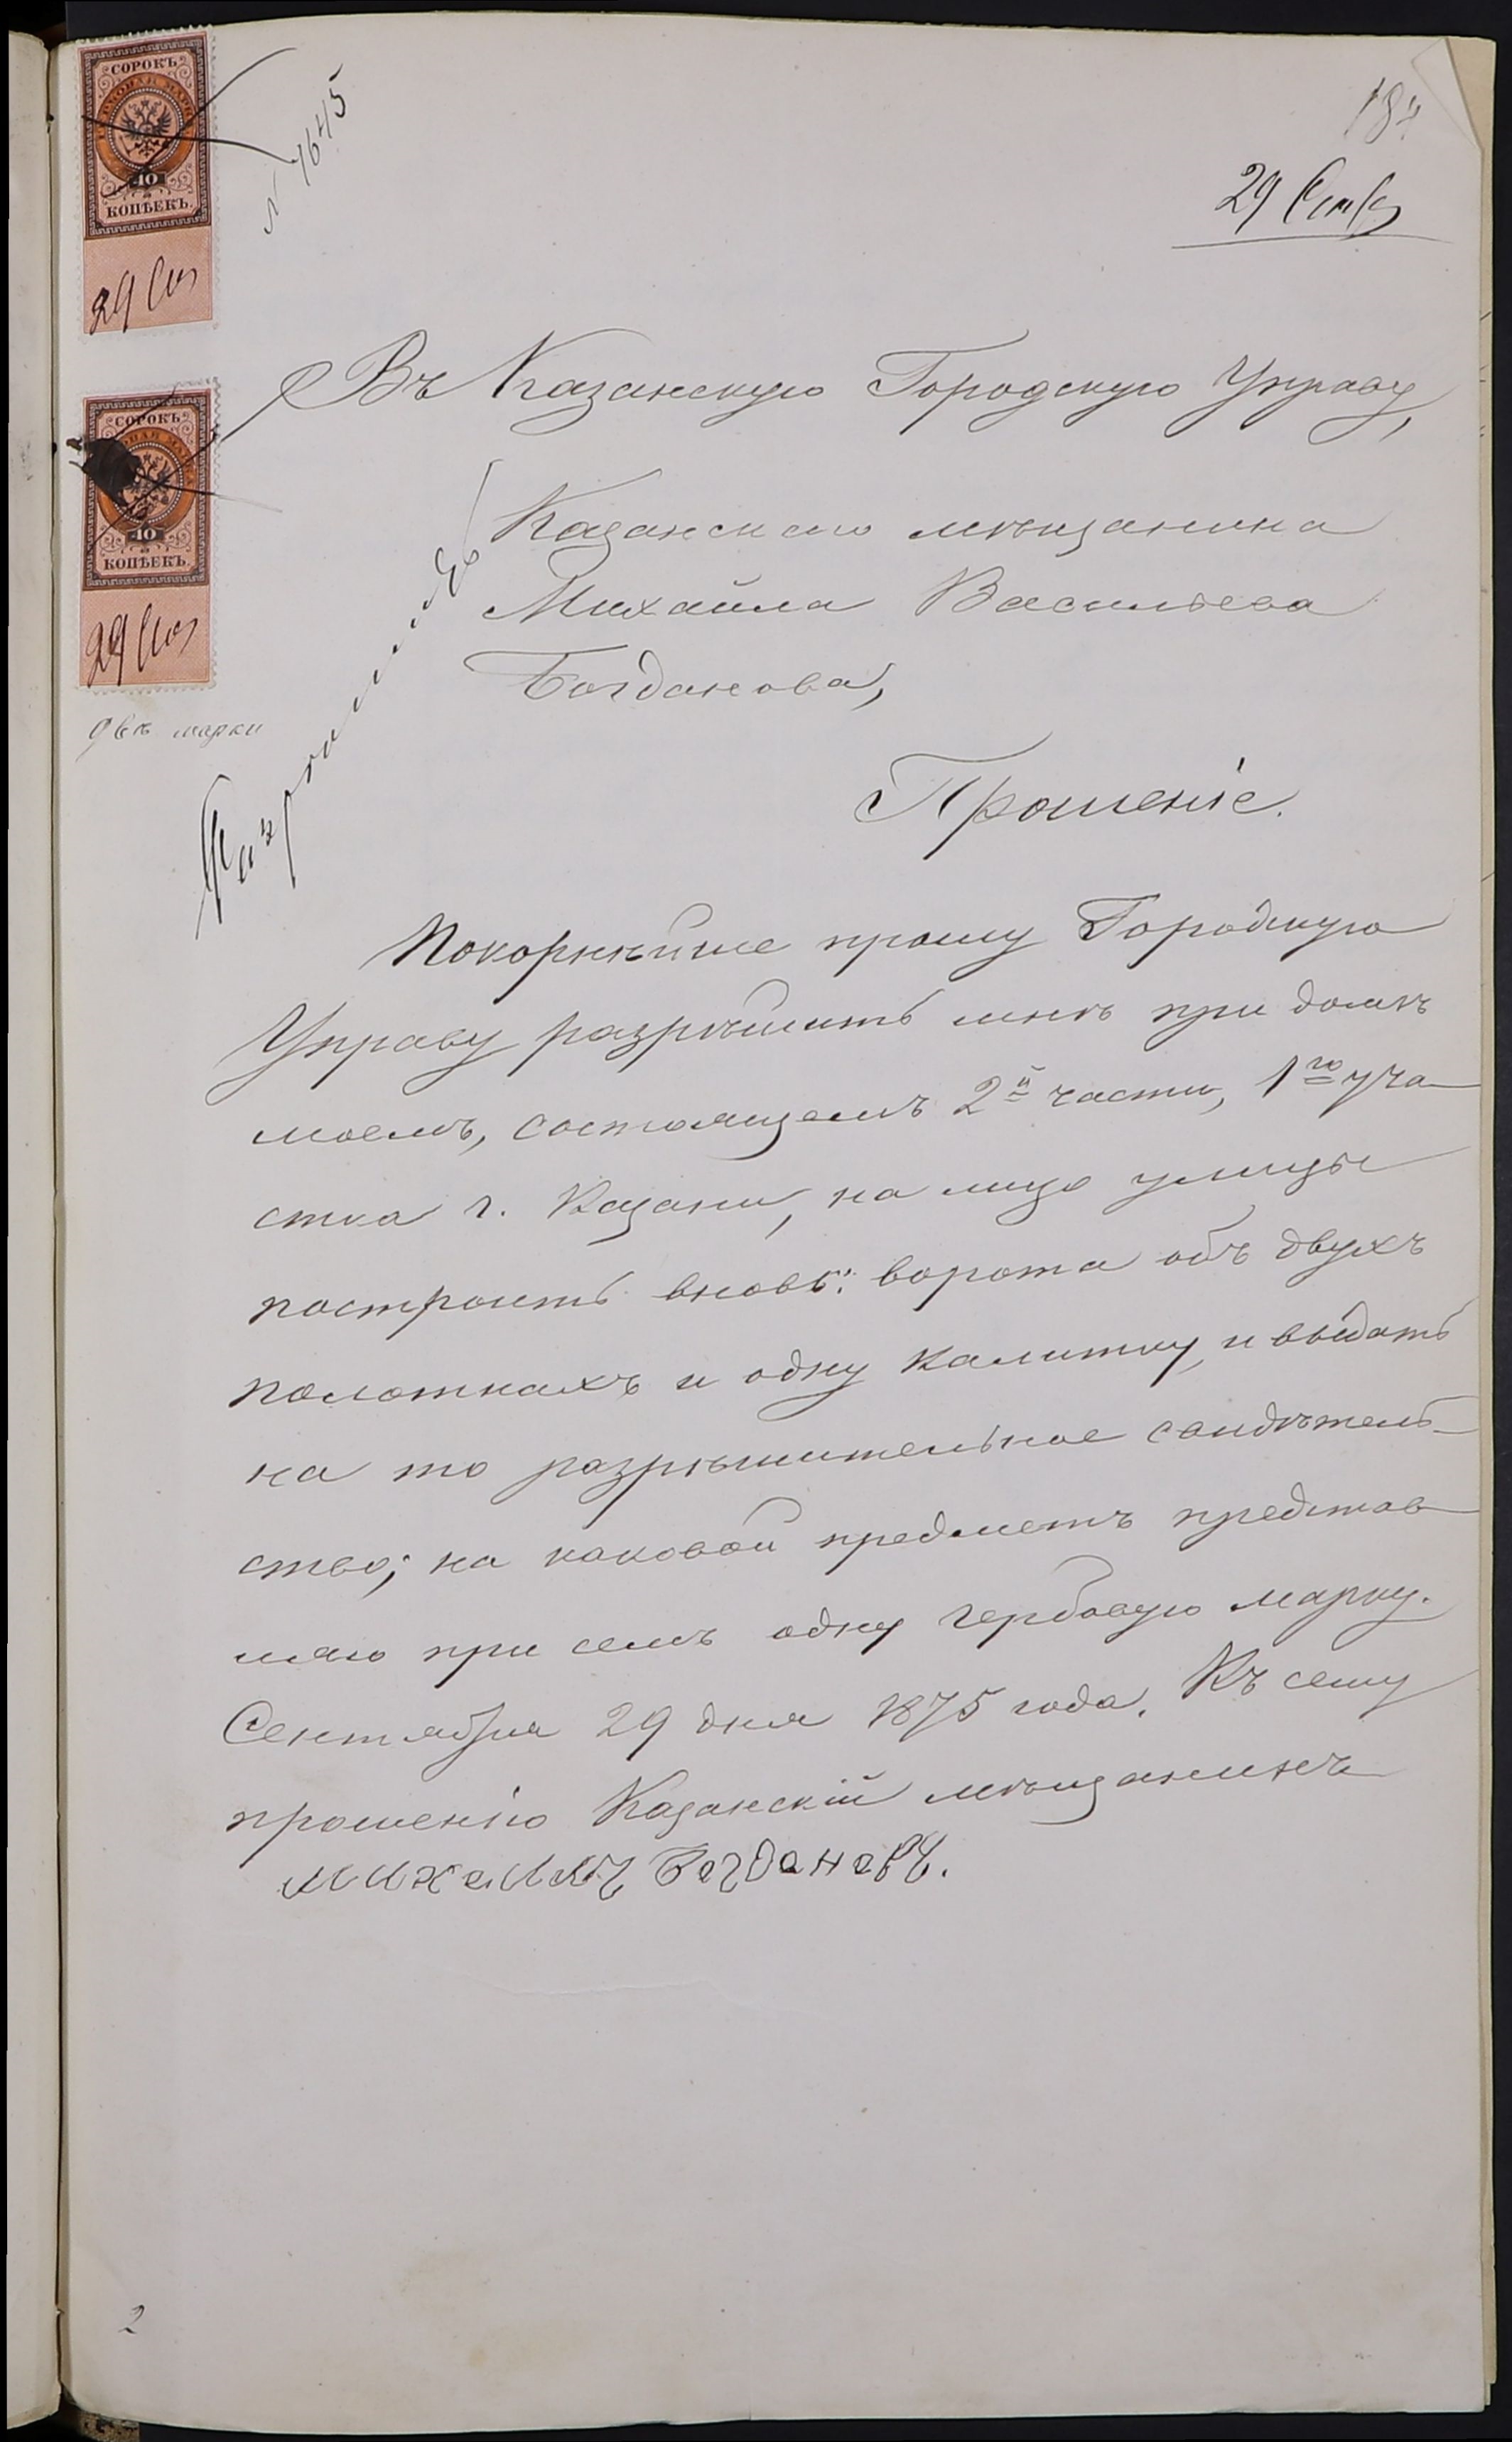 СОРОКЪ
ГЕРБОВАЯ МАРКА
40
КОПѢЕКЪ.
29 Сен
№ 4645
184
29 Сентб
Въ Казанскую Городскую Управу,
СОРОКЪ
ГЕРБОВАЯ МАРКА
40
КОПѢЕКЪ.
29 Сен
двѣ марки
Разрешить
Казанскаго мѣщанина
Михайла Васильева
Богданова,
Прошеніе.
Покорнѣйше прошу Городскую
Управу разрѣшить мнѣ при домѣ
моемъ, состоящемъ 2й части, 1го уча
стка г. Казани, на лицо улицы
построить вновь: ворота объ двухъ
полотнахъ и одну калитку, и выдать
на то разрѣшительное свидѣтель-
ство; на каковой предметъ представ
ляю при семъ одну гербовую марку.
Сентября 29 дня 1875 года. Къ сему
прошенію Казанскій мѣщанинъ
Михаилъ Богдановъ.
2